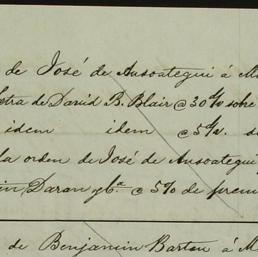 de José de Ansoategui á M
tra de David B. Blair @ 30 d/v sobre
idem idem @ 5 d/v. d
la orden de José de Ansoategui
in, Daran y Ca. @ 5% de prem
de Benjamin Barton á M